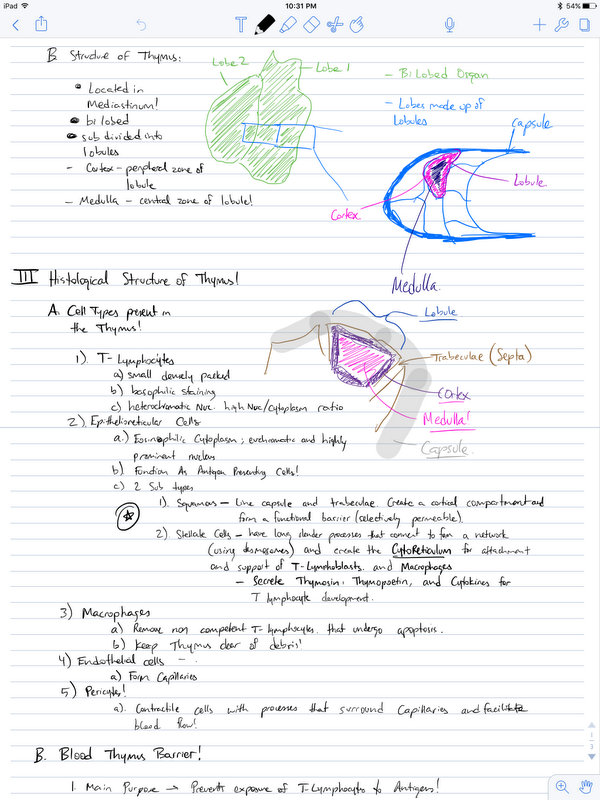 iPad
10:31 PM
54%
B. Structure of Thymus:
Lobe 2
Lobe 1
- Bi Lobed Organ
- Lobes made up of
Lobules
• Located in
Mediastinum!
• bi lobed
• sub divided into
lobules
- Cortex - peripheral zone of
lobule
- Medulla - central zone of lobule!
Capsule
Lobule
Cortex
Medulla
III Histological Structure of Thymus!
A. Cell Types present in
the Thymus!
Lobule
Trabeculae (Septa)
Cortex
Medulla!
Capsule
1). T-Lymphocytes
a) small densely packed
b) basophilic staining
c) heterochromatic Nuc. high Nuc/cytoplasm ratio
2). Epithelioreticular Cells
a.) Eosinophilic Cytoplasm; euchromatic and highly
prominent nucleus
b). Function As Antigen Presenting Cells!
c) 2 Sub types
1). Squamous - Line capsule and trabeculae. Create a cortical compartment and
form a functional barrier (selectively permeable).
2). Stellate Cells - have long slender processes that connect to form a network
(using desmosomes) and create the CytoReticulum for attachment
and support of T-Lymphoblasts. and Macrophages
- Secrete Thymosin, Thymopoetin, and Cytokines for
T lymphocyte development.
3) Macrophages
a) Remove non competent T-lymphocytes. that undergo apoptosis.
b) Keep Thymus clear of debris!
4) Endothelial cells -
a) Form Capillaries
5) Pericytes!
a). Contractile cells with processes that surround Capillaries and facilitate
blood flow!
B. Blood Thymus Barrier!
1. Main Purpose → Prevents exposure of T-Lymphocytes to Antigens!
1
3